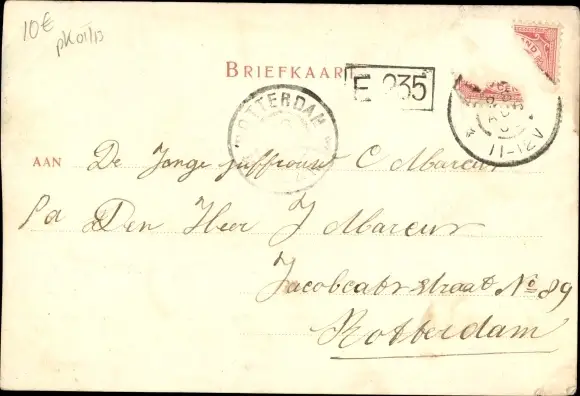 10€
pk01/13
BRIEFKAAR
E 935
ROTTERDAM
11-12V
AAN De Jonge juffrouw C Marcus
Pa Den Heer J Marcus
Jacobcatsstraat No 89
Rotterdam